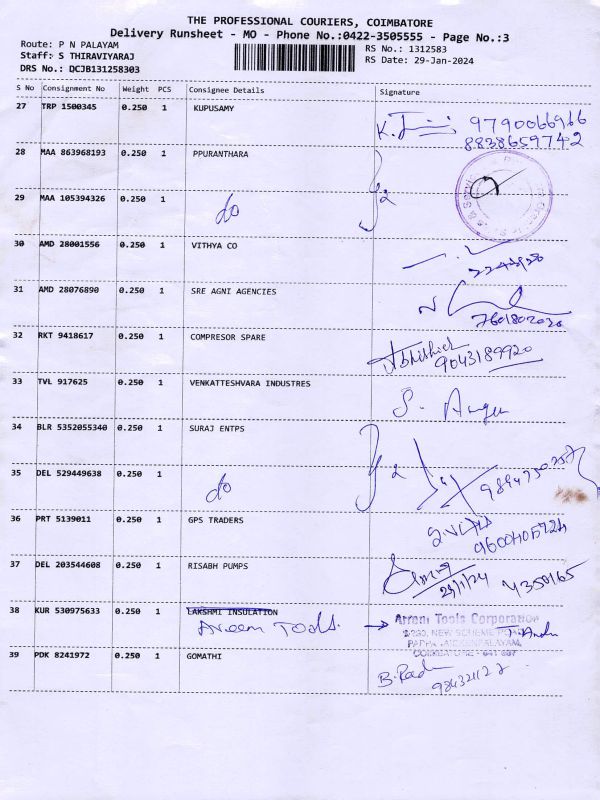 THE PROFESSIONAL COURIERS, COIMBATORE
Delivery Runsheet - MO - Phone No.:0422-3505555 - Page No.:3
Route: P N PALAYAM
RS No.: 1312583
Staff: S THIRAVIYARAJ
RS Date: 29-Jan-2024
DRS No.: DCJB131258303
S No Consignment No Weight PCS Consignee Details Signature
27 TRP 1500345 0.250 1 KUPUSAMY
9790066966
8838659742
28 MAA 863968193 0.250 1 PPURANTHARA
29 MAA 105394326 0.250 1 do
30 AMD 28001556 0.250 1 VITHYA CO
31 AMD 28076890 0.250 1 SRE AGNI AGENCIES
32 RKT 9418617 0.250 1 COMPRESOR SPARE Abhishek
9043189920
33 TVL 917625 0.250 1 VENKATTESHVARA INDUSTRES
34 BLR 5352055340 0.250 1 SURAJ ENTPS
35 DEL 529449638 0.250 1 do
36 PRT 5139011 0.250 1 GPS TRADERS
37 DEL 203544608 0.250 1 RISABH PUMPS
29/1/24 4350165
38 KUR 530975633 0.250 1 LAKSHMI INSULATION
Areem Tools → Arreni Tools Corporation
39 PDK 8241972 0.250 1 GOMATHI